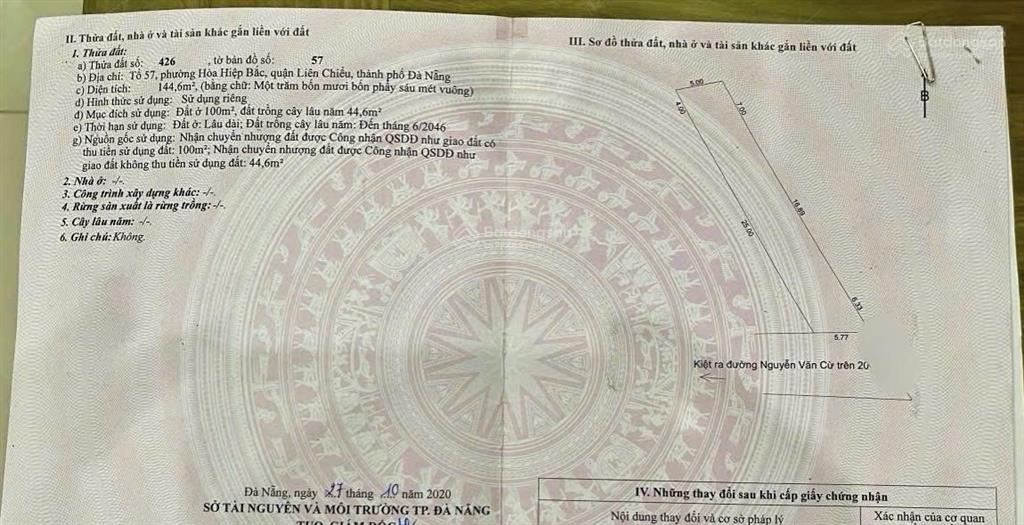 II. Thửa đất, nhà ở và tài sản khác gắn liền với đất
1. Thửa đất:
a) Thửa đất số: 426 , tờ bản đồ số: 57
b) Địa chỉ: Tổ 57, phường Hòa Hiệp Bắc, quận Liên Chiểu, thành phố Đà Nẵng
c) Diện tích: 144,6m², (bằng chữ: Một trăm bốn mươi bốn phẩy sáu mét vuông)
d) Hình thức sử dụng: Sử dụng riêng
đ) Mục đích sử dụng: Đất ở 100m², đất trồng cây lâu năm 44,6m²
e) Thời hạn sử dụng: Đất ở: Lâu dài; Đất trồng cây lâu năm: Đến tháng 6/2046
g) Nguồn gốc sử dụng: Nhận chuyển nhượng đất được Công nhận QSDĐ như giao đất có
thu tiền sử dụng đất: 100m²; Nhận chuyển nhượng đất được Công nhận QSDĐ như
giao đất không thu tiền sử dụng đất: 44,6m²
2. Nhà ở: -/-.
3. Công trình xây dựng khác: -/-.
4. Rừng sản xuất là rừng trồng: -/-.
5. Cây lâu năm: -/-.
6. Ghi chú: Không.
Đà Nẵng, ngày 27 tháng 10 năm 2020
SỞ TÀI NGUYÊN VÀ MÔI TRƯỜNG TP. ĐÀ NẴNG
TUQ. GIÁM ĐỐC
III. Sơ đồ thửa đất, nhà ở và tài sản khác gắn liền với đất
B
5.00
4.00
7.00
16.89
25.00
6.33
5.77
Kiệt ra đường Nguyễn Văn Cừ trên 20
IV. Những thay đổi sau khi cấp giấy chứng nhận
Nội dung thay đổi và cơ sở pháp lý
Xác nhận của cơ quan
Batdongsan